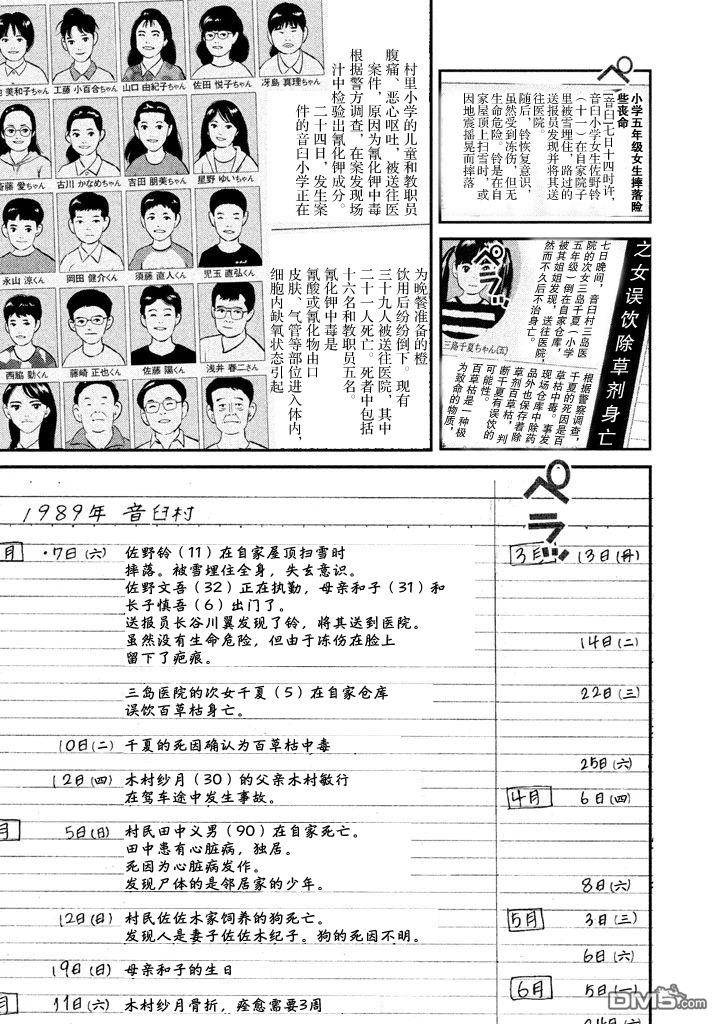 ペラ
小学五年级女生摔落险些丧命
音臼七日十四时许，
音臼小学女生佐野铃
（十一）在自家院子
里被雪埋住，路过的
送报员发现并将其送
往医院。
随后，铃恢复意识，
虽然受到冻伤，但无
生命危险。铃是在自
家屋顶上扫雪时，或
因地震摇晃而摔落
工藤 小百合ちゃん
山口 由紀子ちゃん
佐田 悦子ちゃん
冴島 真理ちゃん
古川 かなめちゃん
吉田 朋美ちゃん
星野 ゆいちゃん
永山 涼くん
岡田 健介くん
須藤 直人くん
児玉 直弘くん
西脇 勤くん
藤崎 正也くん
佐藤 陽くん
浅井 春二さん
村里小学的儿童和教职员
腹痛、恶心呕吐，被送往医
案件，原因为氰化钾中毒
根据警方调查，在案发现场
汁中检验出氰化钾成分。
二十四日，发生案
件的音臼小学正在
为晚餐准备的橙
饮用后纷纷倒下。现有
三十九人被送往医院，其中
二十一人死亡。死者中包括
十六名和教职员五名。
氰化钾中毒是
氰酸或氰化物由口
皮肤、气管等部位进入体内，
细胞内缺氧状态引起
之女误饮除草剂身亡
七日晚间，音臼村三岛医
院的次女三岛千夏（小学
五年级）倒在自家仓库，
被其姐姐发现，送往医院，
然而不久后不治身亡。
三島千夏ちゃん(五)
根据警察调查，
千夏的死因是百
草枯中毒。事发
现场仓库中除药
品外也保存着除
草剂百草枯，判
断千夏有误饮的
可能性。
百草枯是一种极
为致命的物质，
ペラッ
1989年 音臼村
月
7日(六) 佐野铃（11）在自家屋顶扫雪时
摔落。被雪埋住全身，失去意识。
佐野文吾（32）正在执勤，母亲和子（31）和
长子慎吾（6）出门了。
送报员长谷川翼发现了铃，将其送到医院。
虽然没有生命危险，但由于冻伤在脸上
留下了疤痕。
三岛医院的次女千夏（5）在自家仓库
误饮百草枯身亡。
10日(二) 千夏的死因确认为百草枯中毒
12日(四) 木村纱月（30）的父亲木村敏行
在驾车途中发生事故。
月
5日(日) 村民田中义男（90）在自家死亡。
田中患有心脏病，独居。
死因为心脏病发作。
发现尸体的是邻居家的少年。
12日(日) 村民佐佐木家饲养的狗死亡。
发现人是妻子佐佐木纪子。狗的死因不明。
19日(日) 母亲和子的生日
月
11日(六) 木村纱月骨折，痊愈需要3周
3月 13日(月)
14日(二)
22日(三)
25日(六)
4月 6日(四)
8日(六)
5月 3日(三)
6日(六)
6月 5日(一)
24日(六)
DM5.com